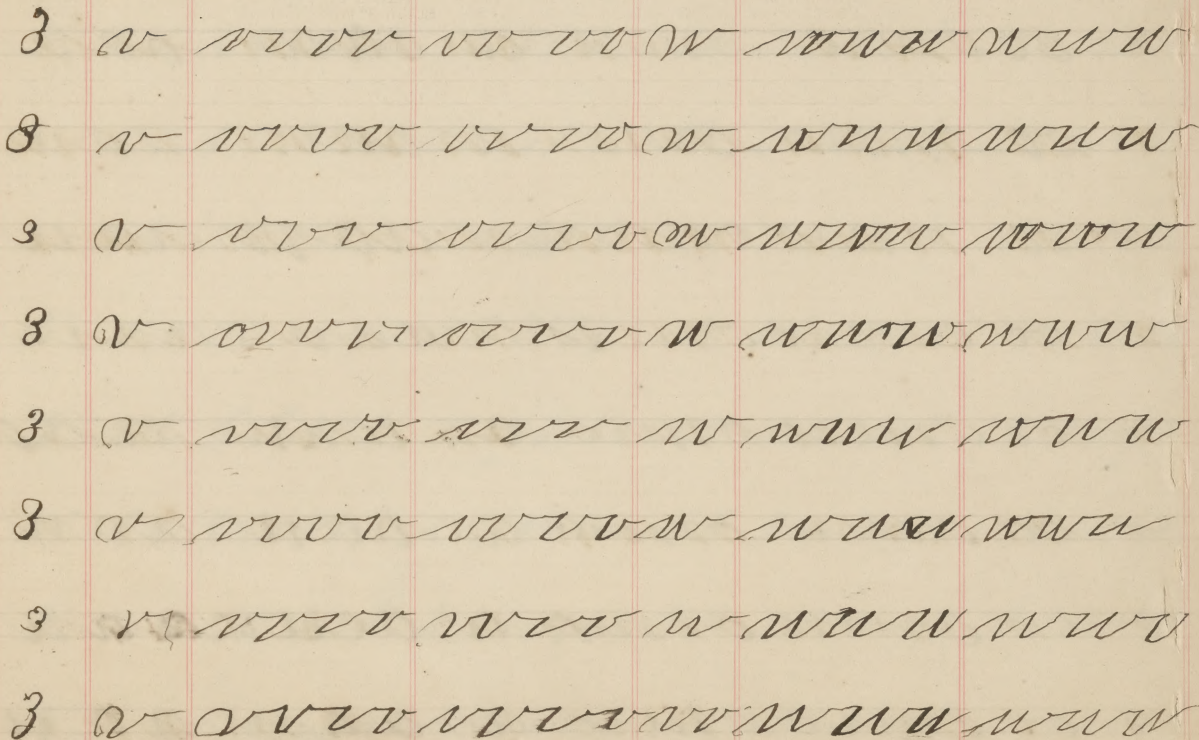 3 v vvvv vv vv w wwww www
8 v vvvv vv vv w wwww www
3 v vvv vvvv w wwww www
3 v vvvv vvvv w wwww www
3 v vvvv vvv w www www
8 v vvvv vvvv w wwww www
3 v vvvv vvvv w wwww www
3 v vvvv vvvv w wwww www